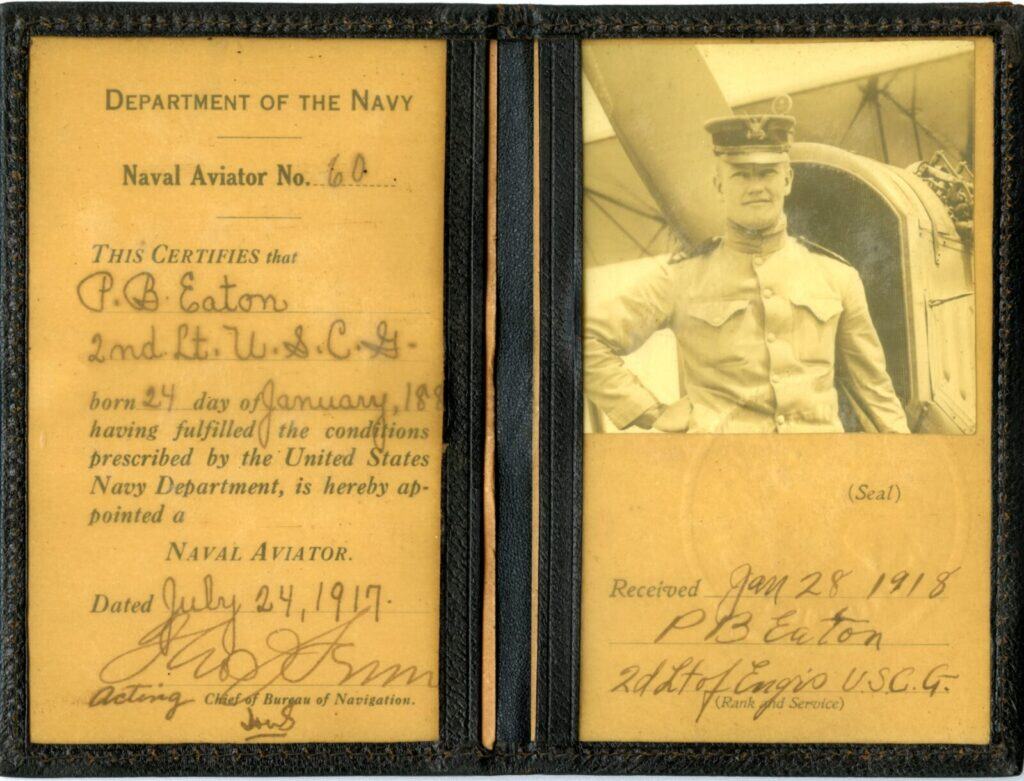 DEPARTMENT OF THE NAVY
Naval Aviator No. 60
THIS CERTIFIES that
P. B. Eaton
2nd. Lt. U. S. C. G.
born 24 day of January, 188
having fulfilled the conditions
prescribed by the United States
Navy Department, is hereby ap-
pointed a
NAVAL AVIATOR.
Dated July 24, 1917.
Acting Chief of Bureau of Navigation.
(Seal)
Received Jan 28 1918
P B Eaton
2d Lt of Engrs U.S.C.G.
(Rank and Service)